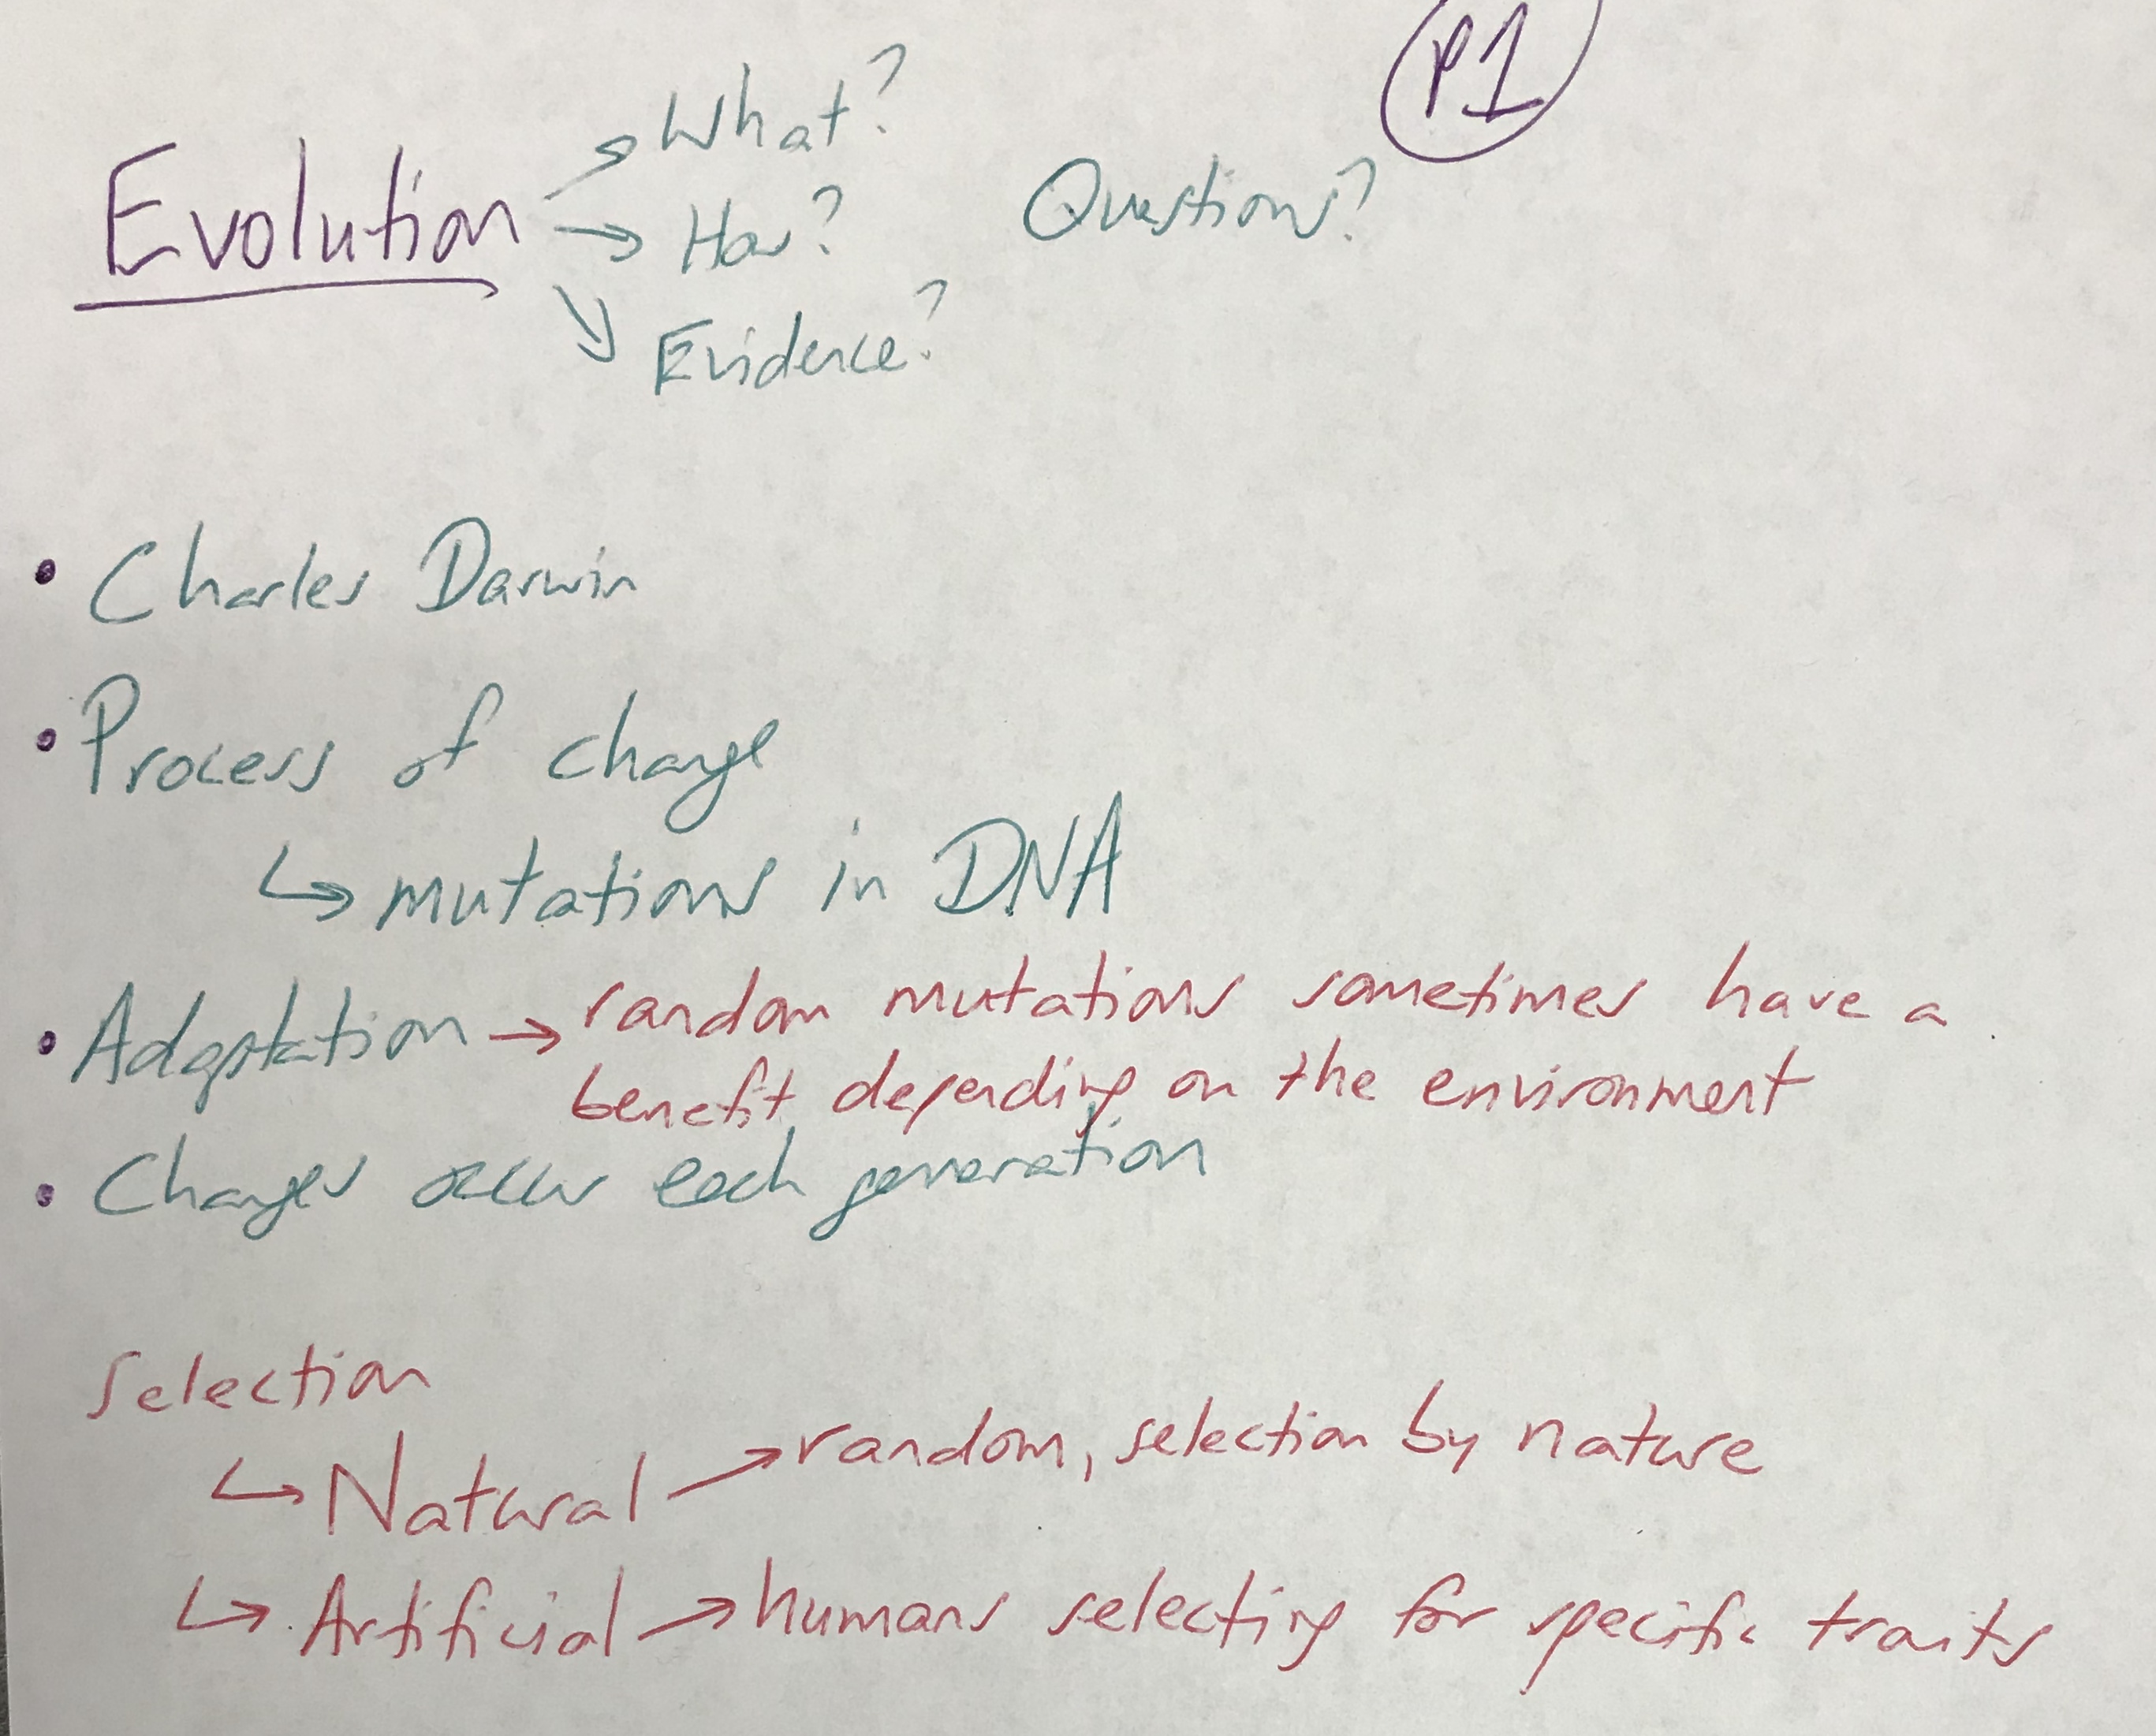 P1
Evolution
→ What?
→ How?
→ Evidence?
Questions?
• Charles Darwin
• Process of change
↳ mutations in DNA
• Adaptation → random mutations sometimes have a
benefit depending on the environment
• Changes occur each generation
Selection
↳ Natural → random, selection by nature
↳ Artificial → humans selecting for specific traits